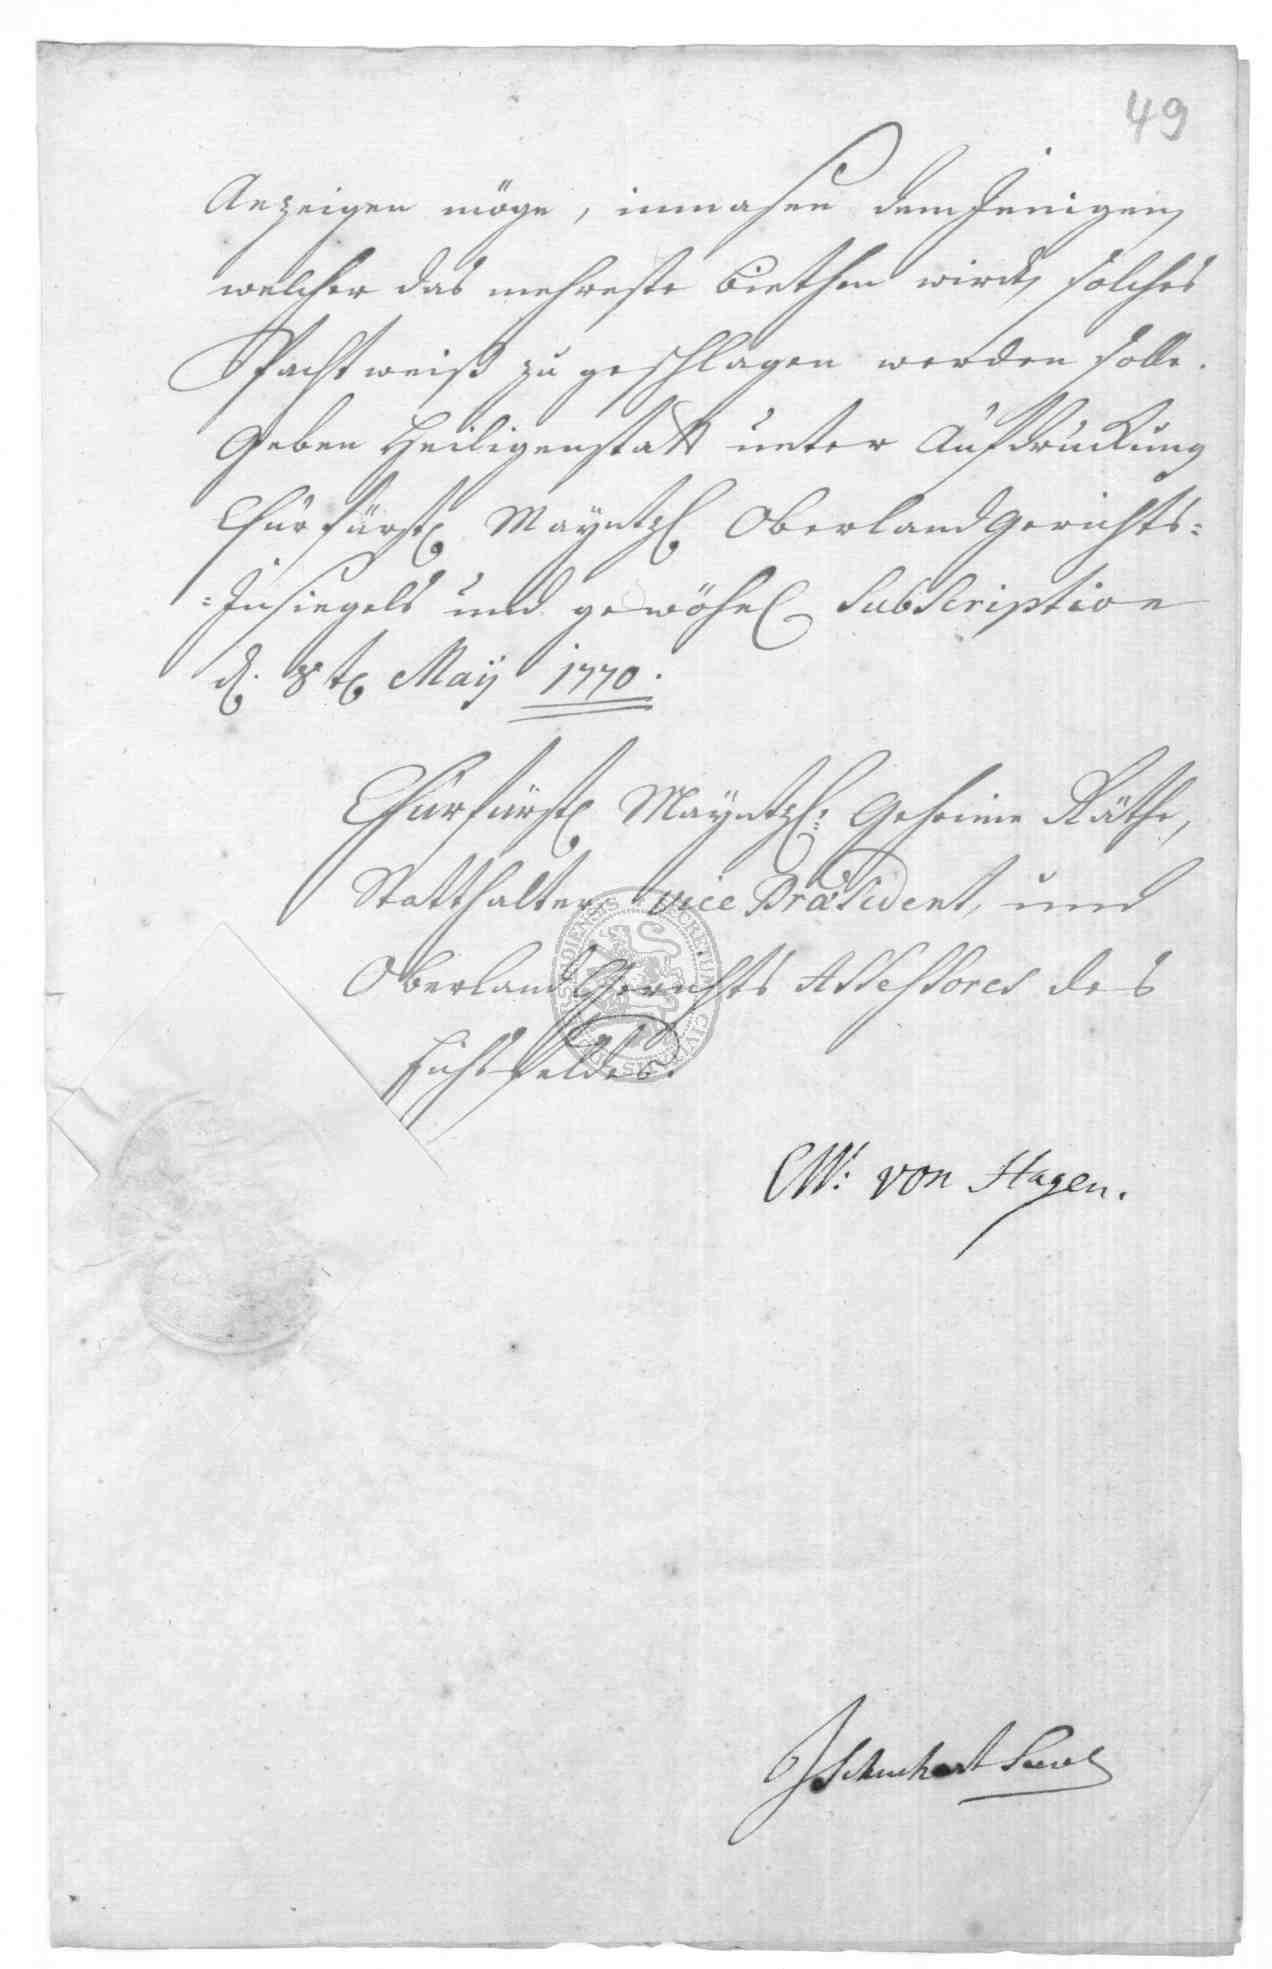 49
Anzeigen möge, inmasen demJenigen,
welcher das mehreste biethen wird, solches
Pachtweiß zu geschlagen werden solle.
Geben Heiligenstatt unter Aufdruckung
Churfürstl Mayntzl Oberlandgerichts=
=Insiegels und gewöhnl Subscription
d. 8t May 1770.
Churfürstl Mayntzl: Geheime Räthe,
Statthalter, vice Præsident, und
OberlandGerichts Assessores des
Eichsfeldes.
CW: von Hagen.
JSchuchart Secr